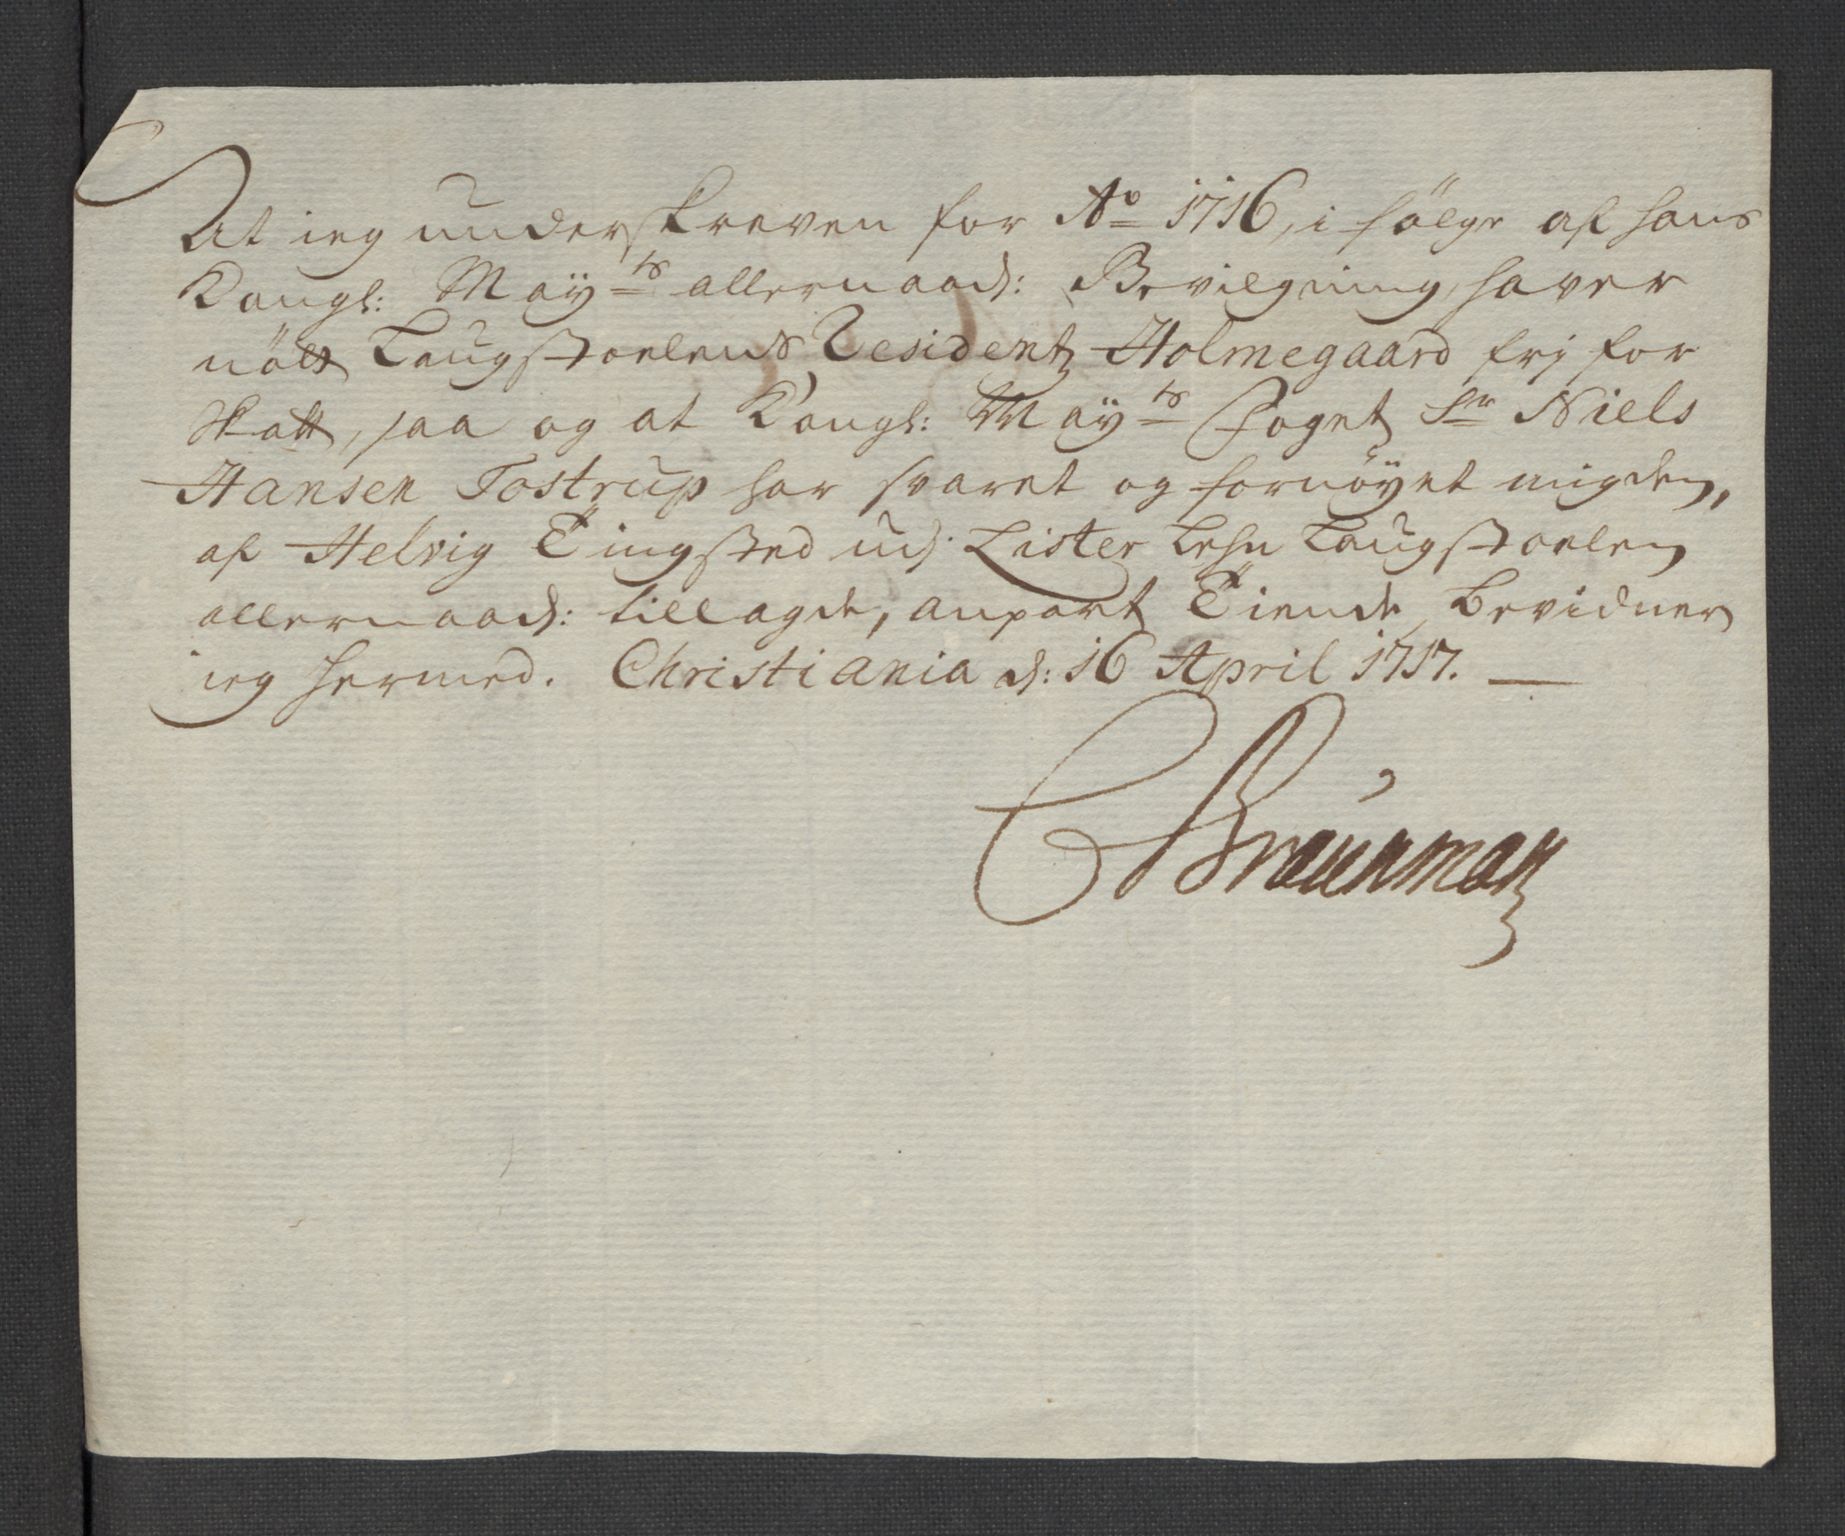 At ieg underskreven for Ao 1716, i følge af hans
Kongl: Mayts allernaad: Bevilgning, haver
nött Laugstoelens Residentz Holmegaard frj for
Skatt, saa og at Kongl: Mayts Foget Sr Niels
Hansen Tostrup har svaret og fornøyet mig den,
af Helvig Tingsted ud: Lister Lehn Laugstoelen
allernaad: tillagde, anpart Tiende, bevidner
ieg hermed. Christiania d: 16 April 1717.
CBraunman